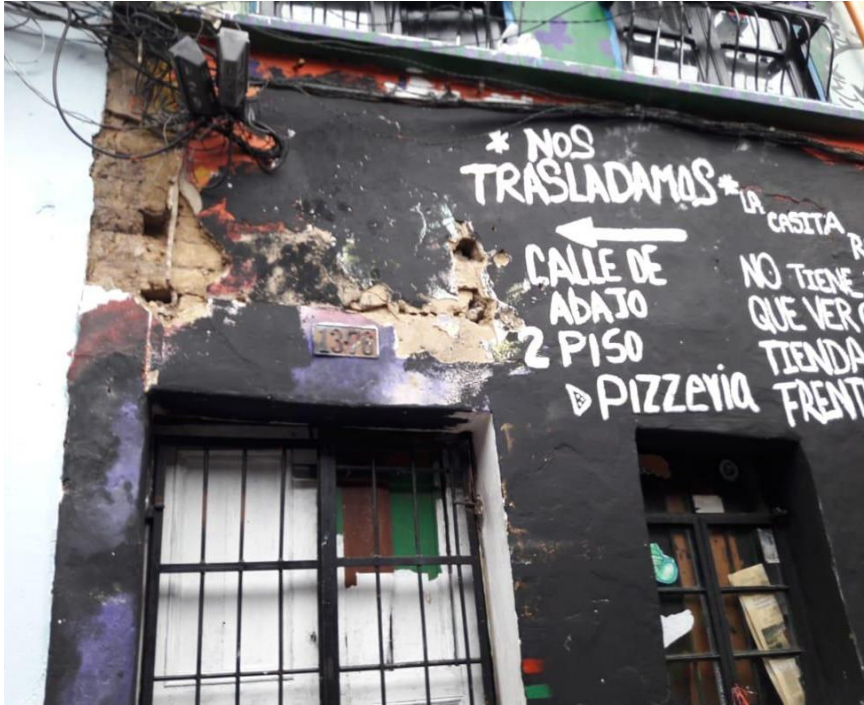 * NOS
TRASLADAMOS *
CALLE DE
ABAJO
2 PISO
PIZZERIA
13-76
LA
CASITA
NO TIENE
QUE VER
TIENDA
FRENT